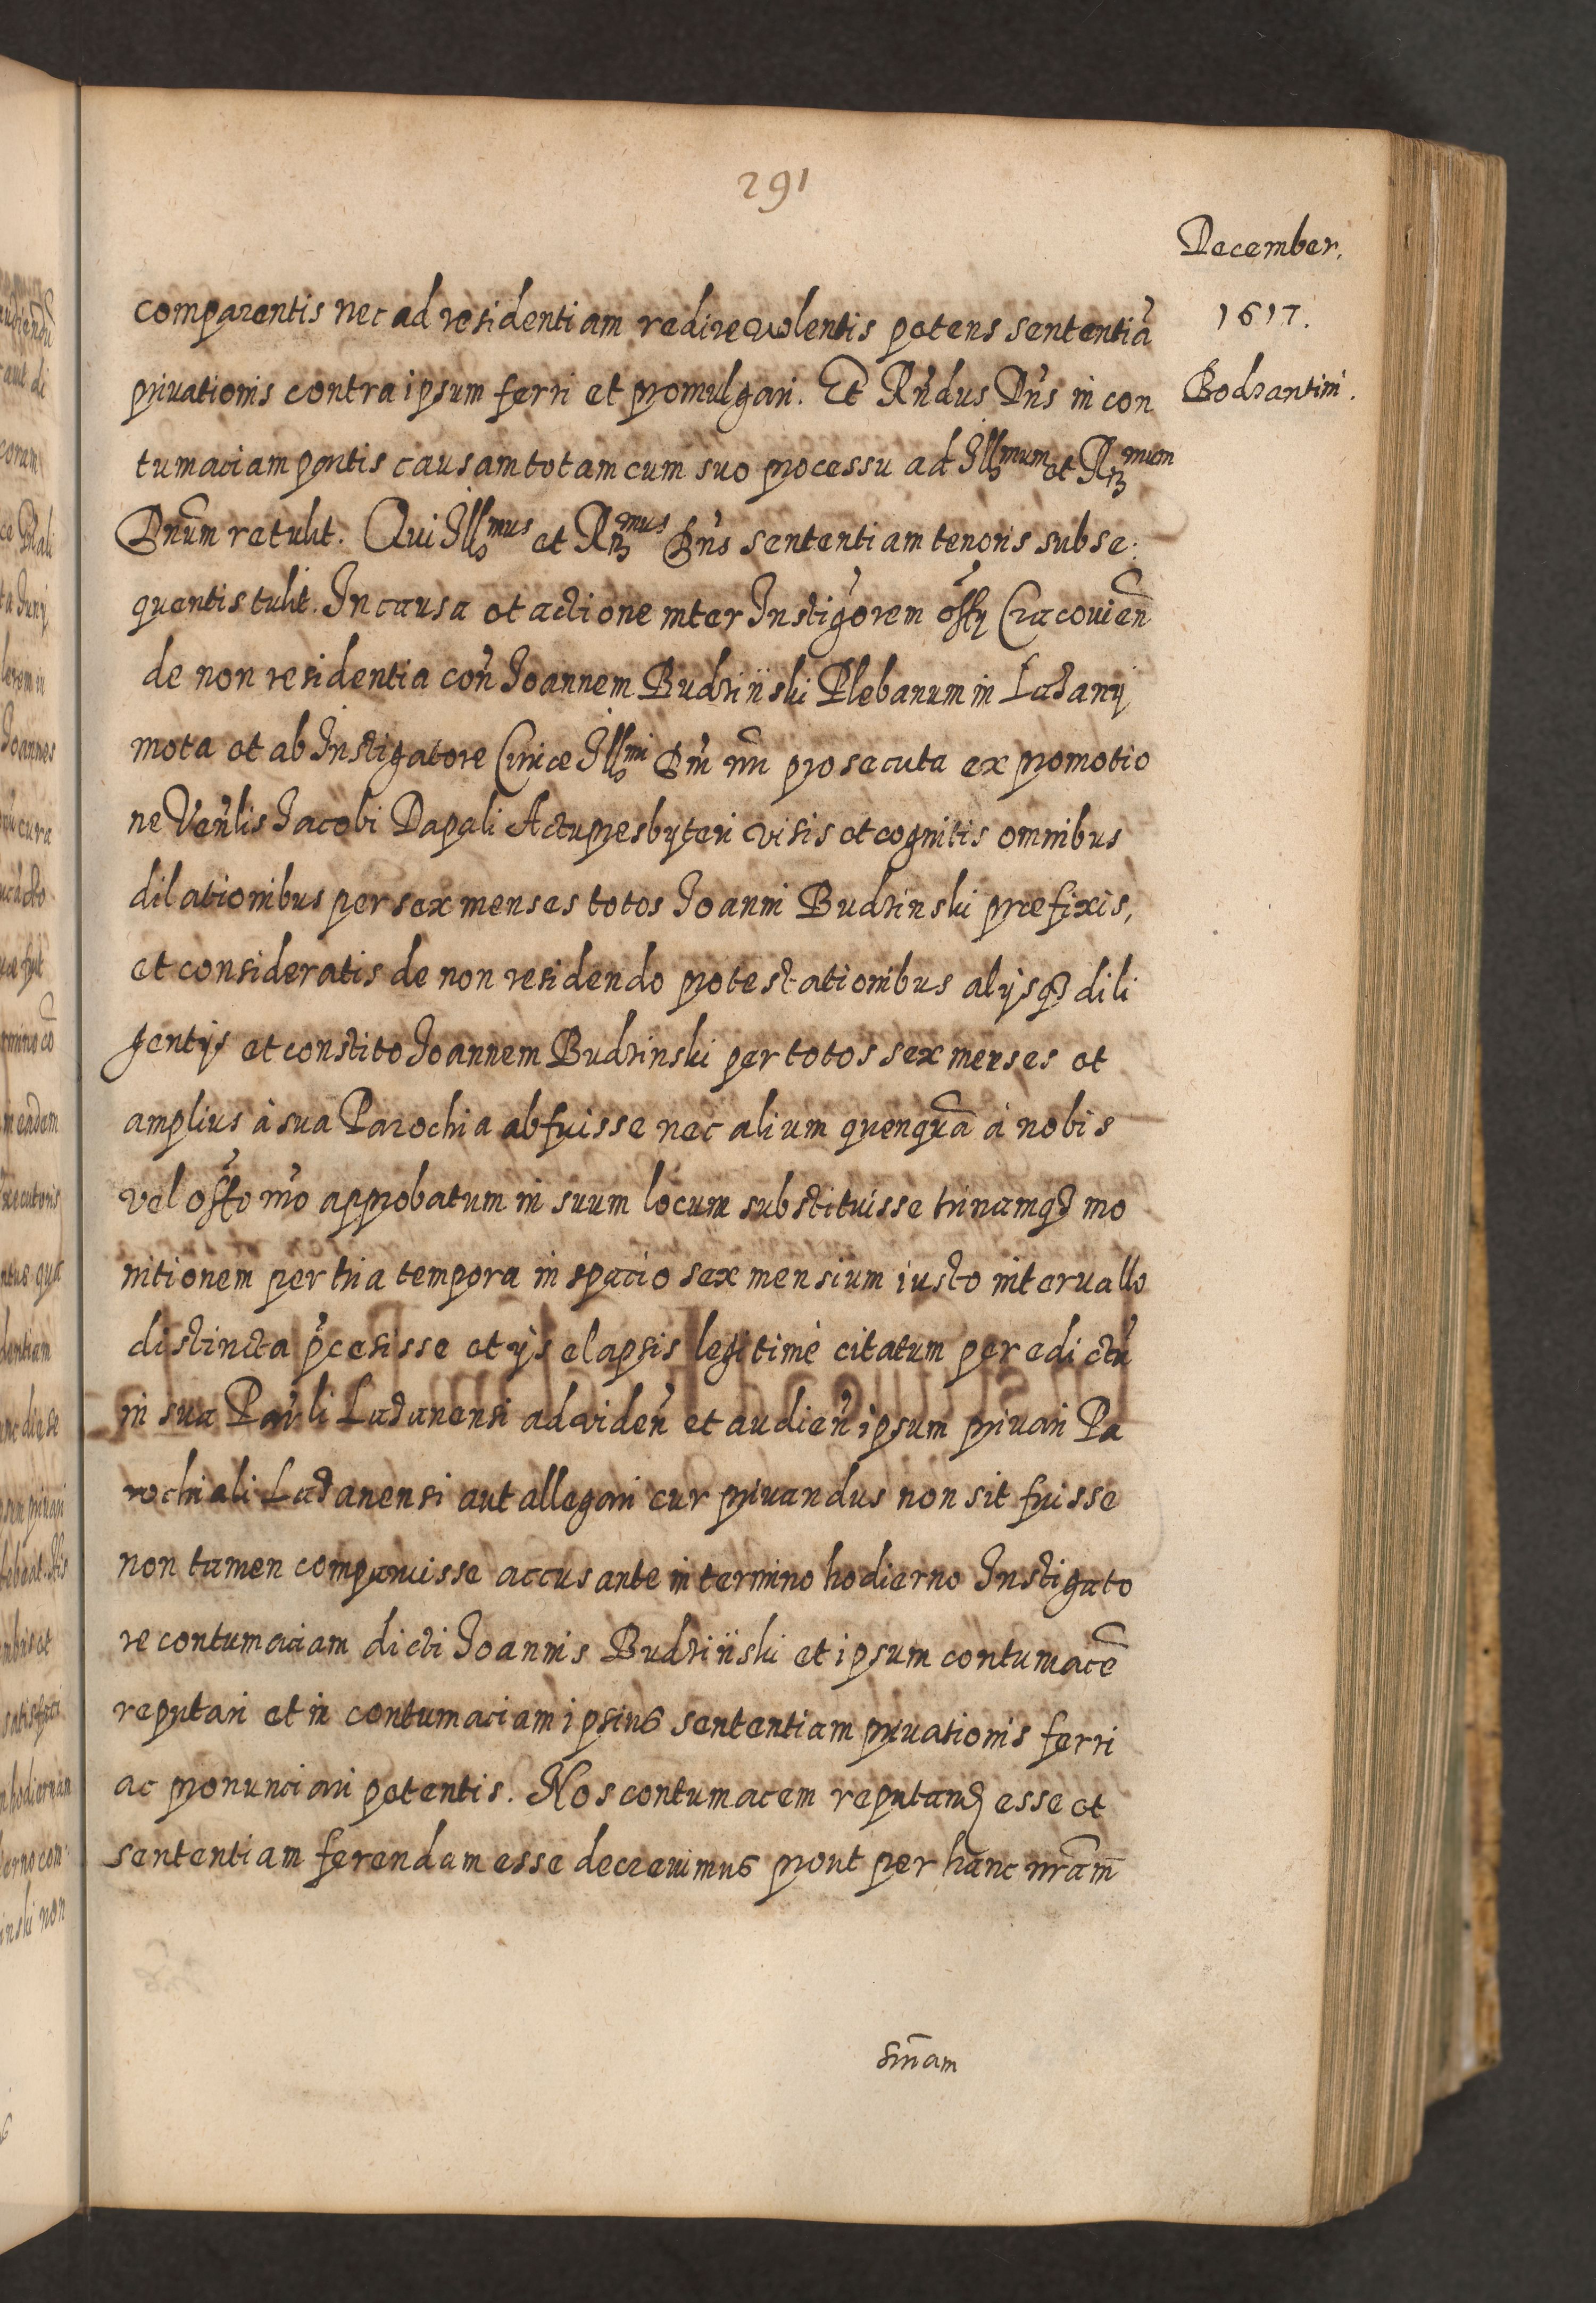 291
December.
1617.
Bodzantini.
comparentis nec ad residentiam redire volentis petens sententiā
privationis contra ipsum ferri et promulgari. Et Rn̄dus Dn̄s in con
tumaciam pn̄tis causam totam cum suo processu ad Illmum et Rmum
Dnūm retulit. Qui Illmus et Rmus Dn̄s sententiam tenoris subse:
quentis tulit. In causa et actione inter Instigōrem offy Cracovien̄
de non residentia con̄ Joannem Budziński Plebanum in Ladany
mota et ab Instigatore Curiæ Illmi Dni nr̄i prosecuta ex promotio
ne Ven̄lis Jacobi Dapali Actupresbyteri visis et cognitis omnibus
dilationibus per sex menses totos Joanni Budzinski præfixis,
et consideratis de non residendo protestationibus alijsq3 dili
gentijs et constito Joannem Budzinski per totos sex menses et
amplius à sua Parochia abfuisse nec alium quenquā à nobis
vel offo nr̄o approbatum in suum locum substituisse trinamq3 mo
nitionem per tria tempora in spatio sex mensium iusto intervallo
distincta p̄cesisse et ijs elapsis legitimè citatum per edictū
in sua Par̄li Ladanensi ad viden̄ et audien̄ ipsum privari Pa
rochiali Ladanensi aut allegari cur privandus non sit fuisse
non tamen comparuisse accusante in termino hodierno Instigato
re contumaciam dicti Joannis Budziński et ipsum contumacē
reputari et in contumaciam ipsius sententiam privationis ferri
ac pronunciari petentis. Nos contumacem reputand esse et
sententiam ferendam esse decrevimus prout per hanc nr̄am
sn̄iam